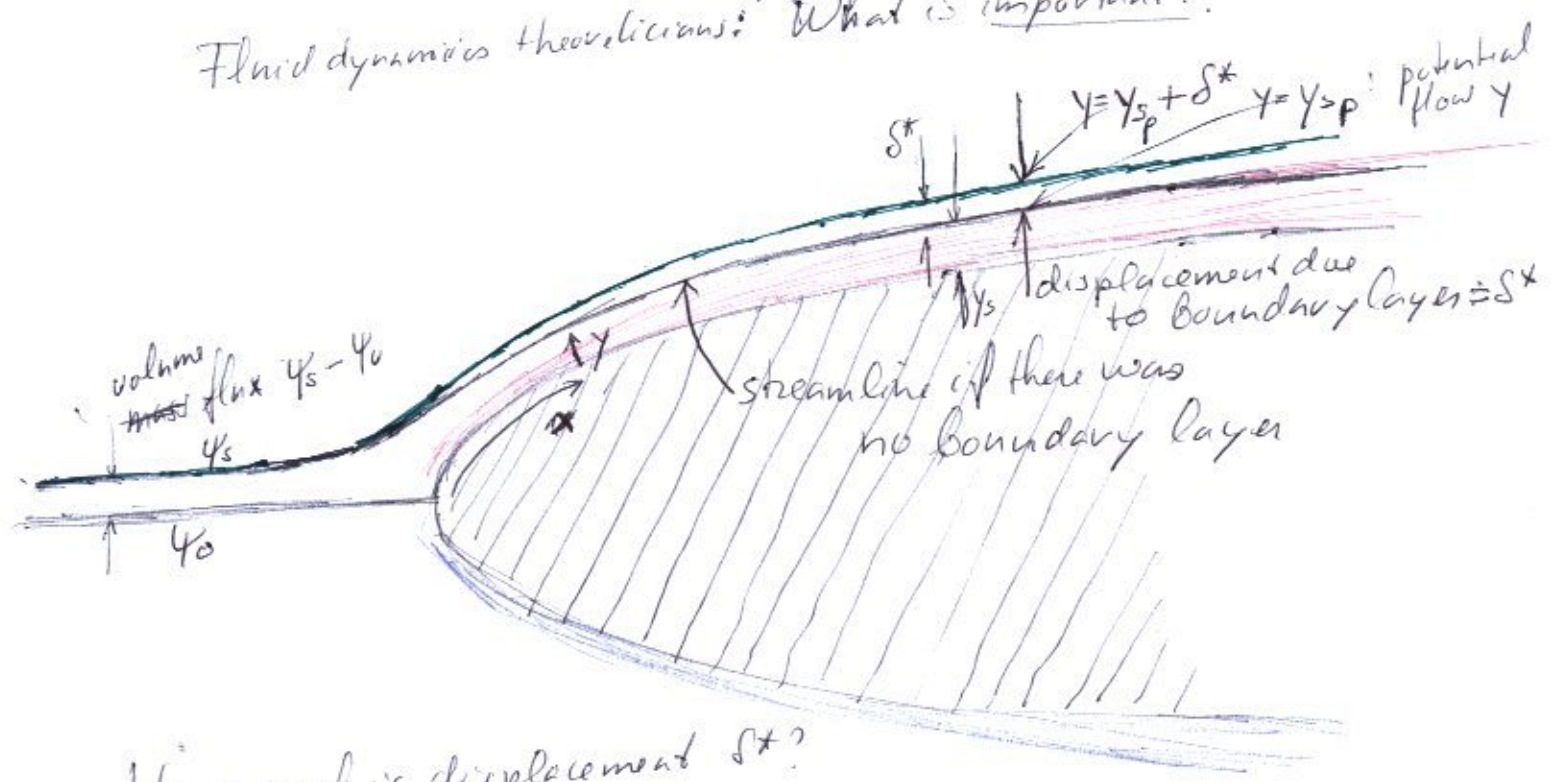 Fluid dynamics theoreticians: What is important?
δ*
y = y_sp + δ*
y = y_sp : potential
flow y
displacement due
to boundary layer ≐ δ*
y_s
volume
mass flux ψ_s - ψ_0
ψ_s
y
x
streamline if there was
no boundary layer
ψ_0
displacement δ*?